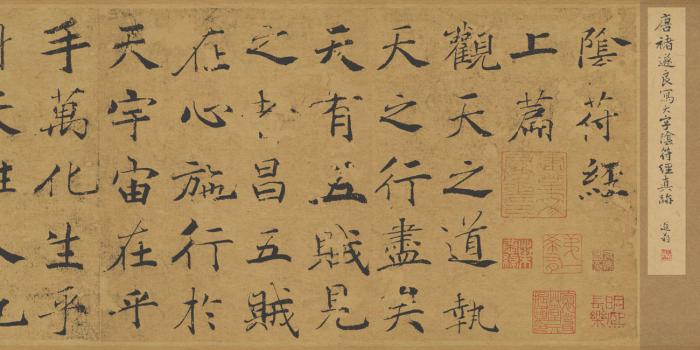 唐褚遂良寫大字陰符經真跡
陰符經
上萹
觀天之道執
天之行盡矣
天有五賊見
之者昌五賊
在心施行於
天宇宙在乎
手萬化生乎